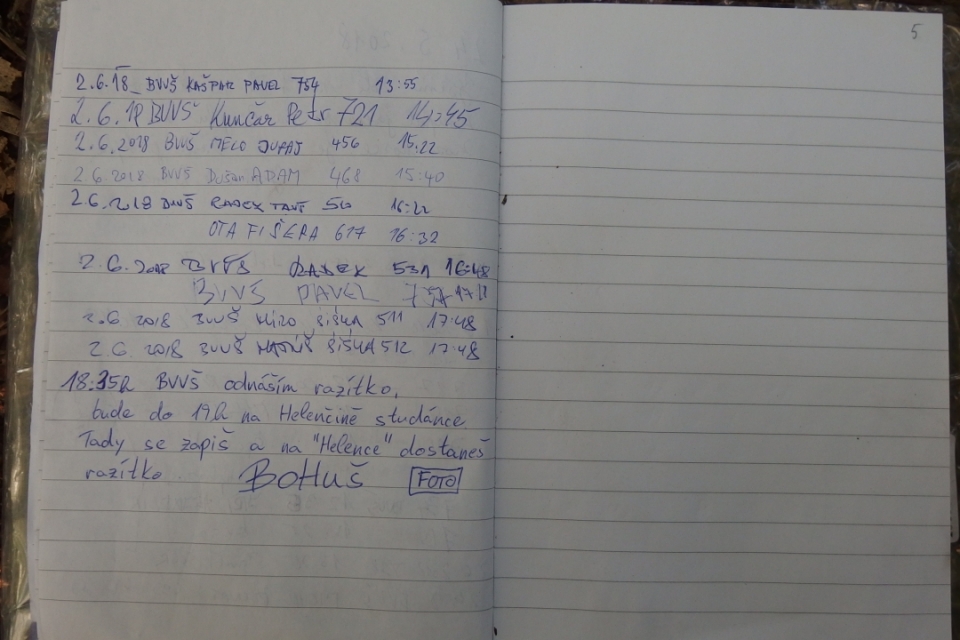 2.6.18 BVVŠ KAŠPAR PAVEL 754 13:55
2.6.18 BVVŠ Kunčar Petr 721 14:45
2.6.2018 BVVŠ MELO 456 15.22
2.6 2018 BVVŠ Dušan ADAM 468 15:40
2.6.2018 BVVŠ RADEK 16:22
OTA FIŠERA 617 16:32
2.6.2018 BVVŠ RADEK 531 16:48
BVVŠ PAVEL
2.6 2018 BVVŠ MIRO ŠIŠKA 511 17:48
2.6. 2018 BVVŠ MATÚŠ ŠIŠKA 512 17:48
18:35h BVVŠ odnáším razítko,
bude do 19h na Helenčině studánce
Tady se zapiš a na "Helence" dostaneš
razítko BOHUŠ FOTO
5